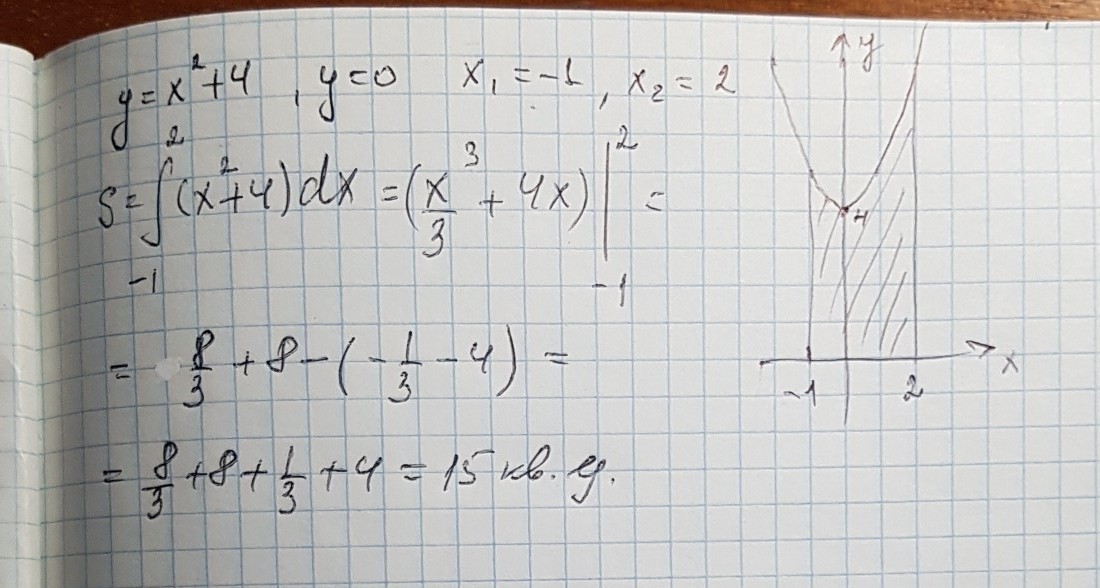 y = x² + 4 , y = 0 x₁ = -1 , x₂ = 2
S = ∫₋₁² (x² + 4) dx = (x³/3 + 4x) |₋₁² =
= 8/3 + 8 - (- 1/3 - 4) =
= 8/3 + 8 + 1/3 + 4 = 15 кв. ед.
y
4
-1 2 x